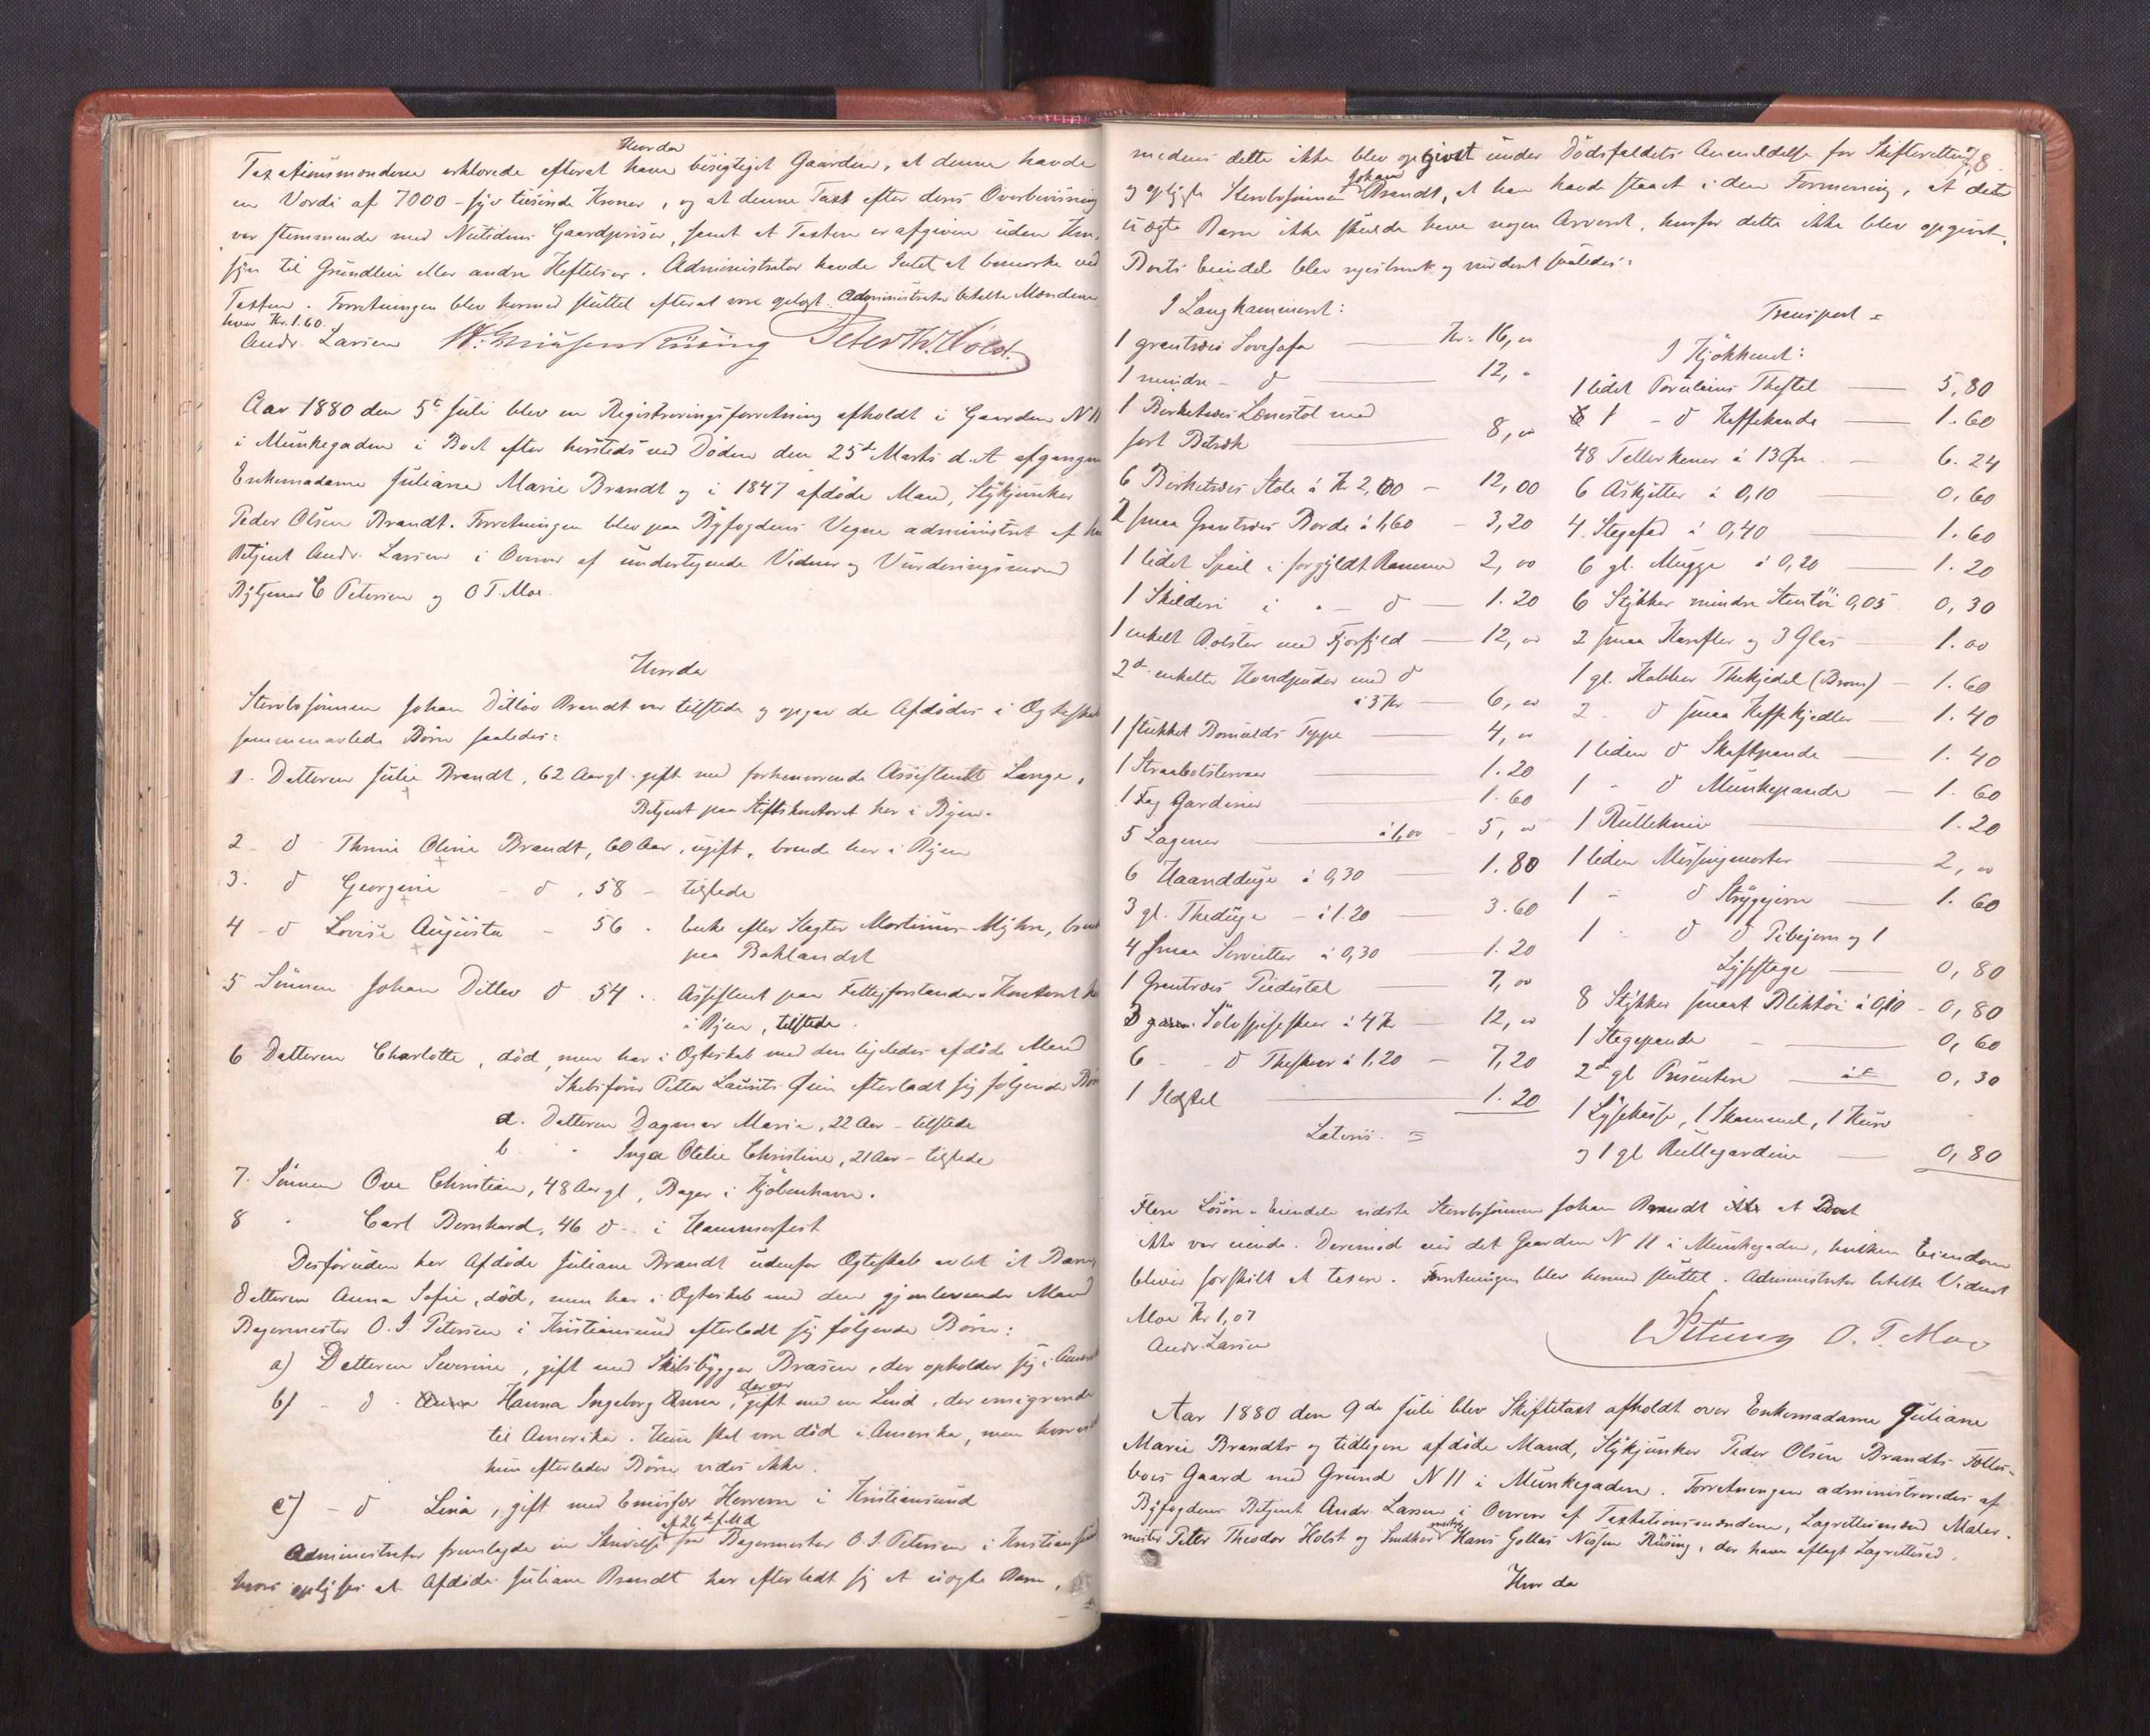 Hvorda
Taxationsmændene erklærede efterat have besigtiget Gaarden, at denne havde
en Værdi af 7000 - syv tusinde Kroner, og at denne Taxt efter deres Overbeviisning
var stemmende med Nutidens Gaardpriser, samt at Taxten er afgiven uden Hen-
syn til Grundleie eller andre Heftelser. Administrator havde Intet at bemærke ved
Taxten. Forretningen blev hermed sluttet efterat være oplæst. Administrator betalte Mændene
hver Kr. 1.60.
Andr. Larsen Peter Th. Holst.
Aar 1880 den 5te Juli blev en Registreringsforretning afholdt i Gaarden N 11
i Munkegaden i Boet efter hersteds ved Døden den 25de Marts d. A. afgangne
Enkemadame Juliane Marie Brandt og i 1847 afdøde Mand, Stykjunker
Peder Olsen Brandt. Forretningen blev paa Byfogdens Vegne administret af
Betjent Andr. Larsen i Overvær af undertegnede Vidner og Vurderingsmænd
Bytjener C Petersen og O T. Moe.
Hvorda
Stervbosønnen Johan Ditlev Brandt var tilstede og opgav de Afdødes i Ægteskab
sammenavlede Børn saaledes:
1. Datteren Julie Brandt, 62 Aar gl. gift med forhenværende Assistent Lange,
Betjent paa Stiftskontoret her i Byen.
2 - d Thrine Oline Brandt, 60 Aar, ugift, boende her i Byen
3. d Georgine - d , 58 - tilstede
4 - d Lovise Augusta - 56 . Enke efter Slagter Martinus Myhre, boende
paa Baklandet
5 Sønnen Johan Ditlev d 54 .. Assistent paa Fattigforstander-Kontoret
i Byen, tilstede.
6 Datteren Charlotte, død, men har i Ægteskab med den ligeledes afdøde Mand
Skibsfører Petter Laurits efterladt sig følgende Børn
a. Datteren Dagmar Marie, 22 Aar - tilstede
b. " Inga Otelie Christine, 21 Aar - tilstede
7. Sønnen Ove Christian, 48 Aar gl, Bager i Kjøbenhavn.
8 " Carl Bernhard, 46 d - i Hammerfest
Desforuden har Afdøde Juliane Brandt udenfor Ægteskab avlet et Barn,
Datteren Anna Sofie, død, men har i Ægteskab med den gjenlevende Mand
Bagermester O. I. Petersen i Kristiansund efterladt sig følgende Børn:
a) Datteren Severine, gift med Skibsbygger Brasen, der opholder sig i
b) - d . Hanna Ingeborg Anna, der var gift med en Lind, der emigrerede
til Amerika. Hun skal være død i Amerika, men hvorvidt
hun efterlader Børn vides ikke.
c) - d Lina, gift med Emissær Herrem i Kristiansund
Administrator fremlagde en Skrivelse af 26de f. Md fra Bagermester O. I. Petersen i Kristiansund
hvori oplyses at Afdøde Juliane Brandt har efterladt sig et uægte Barn,
78
medens dette ikke blev opgivet under Dødsfaldets Anmeldelse for Skifteretten
og oplyste Stervbosønnen Johan Brandt, at han havde staaet i den Formening, at dette
uægte Barn ikke skulde have nogen Arveret, hvorfor dette ikke blev opgivet.
Boets Eiendele blev registreret og vurderet saaledes:
I Langkammeret:
1 grantræes Sovesofa — Kr. 16,00
1 mindre - d — 12, "
1 Birketræes Lænestol med
sort Betræk — 8,00
6 Birketræes Stole á Kr 2,00 — 12,00
2 smaa Grantræes Borde á 1,60 — 3,20
1 lidet Speil i forgyldt Ramme 2,00
1 Skilderi i " - d — 1.20
1 enkelt Bolster med Fjærfyld — 12,00
2de enkelte Hovedpuder med d
á 3 Kr — 6,00
1 stukket Bomulds Teppe — 4,00
1 Straabolstervaar 1.20
1 Fag Gardiner 1.60
5 Lagener — á 1,00 - 5,00
6 Haandduge á 0,30 — 1.80
3 gl. Theduge - á 1.20 — 3.60
4 smaa Servietter á 0,30 — 1.20
1 Grantræes Piedestal 7,00
3 Sølvspiseskeer á 4 Kr — 12,00
6 - d Theskeer á 1,20 — 7,20
1 Ildstel — 1.20
Lateris. =
Transport =
I Kjøkkenet:
1 lidet Porcelains Thestel — 5,80
1 - d Kaffekande — 1.60
48 Tellerkener á 13 Øre — 6.24
6 Askjetter á 0,10 — 0,60
4 Stegefad á 0,40 — 1.60
6 gl. Mugge á 0,20 — 1.20
6 Stykker mindre Stentøi 0,05 . 0,30
2 smaa Karafler og 3 Glas — 1.00
1 gl. Kobber Thekjedel (Brom) — 1.60
2 - d smaa Kaffekjedler — 1.40
1 liden d Skaftpande — 1.40
1 - d Munkepande — 1.60
1 Rullekniv — 1.20
1 liden Messingmorter — 2,00
1 - d Strygejern — 1.60
1 - d d Pibejern og 1
Lysestage — 0,80
8 Stykker smaat Bliktøi á 0,10 - 0,80
1 Stegepande — 0,60
2de gl Presenter — 0,30
1 Lysekasse, 1 Skammel, 1 Kurv
og 1 gl Rullegardine — 0,80
Flere Løsøre-Eiendele vidste Stervbosønnen Johan Brandt ikke at Boet
ikke var eiende. Derimod eier det Gaarden N 11 i Munkegaden, hvilken Eiendom
bliver særskilt at taxere. Forretningen blev hermed sluttet. Administrator betalte Vidnet
Moe Kr 1,07
Andr. Larsen
CPetersen O. T. Moe
Aar 1880 den 9de Juli blev Skiftetaxt afholdt over Enkemadame Juliane
Marie Brandts og tidligere afdøde Mand, Stykjunker Peder Olsen Brandts Fælles-
boes Gaard med Grund N 11 i Munkegaden. Forretningen administreredes af
Byfogdens Betjent Andr. Larsen i Overvær af Taxtationsmændene, Lagrettesmænd Maler-
mester Petter Theodor Holst og Snedkermester Hans Gollas Nissen Rüsing, der have aflagt Lagretteseed.
Hvor da